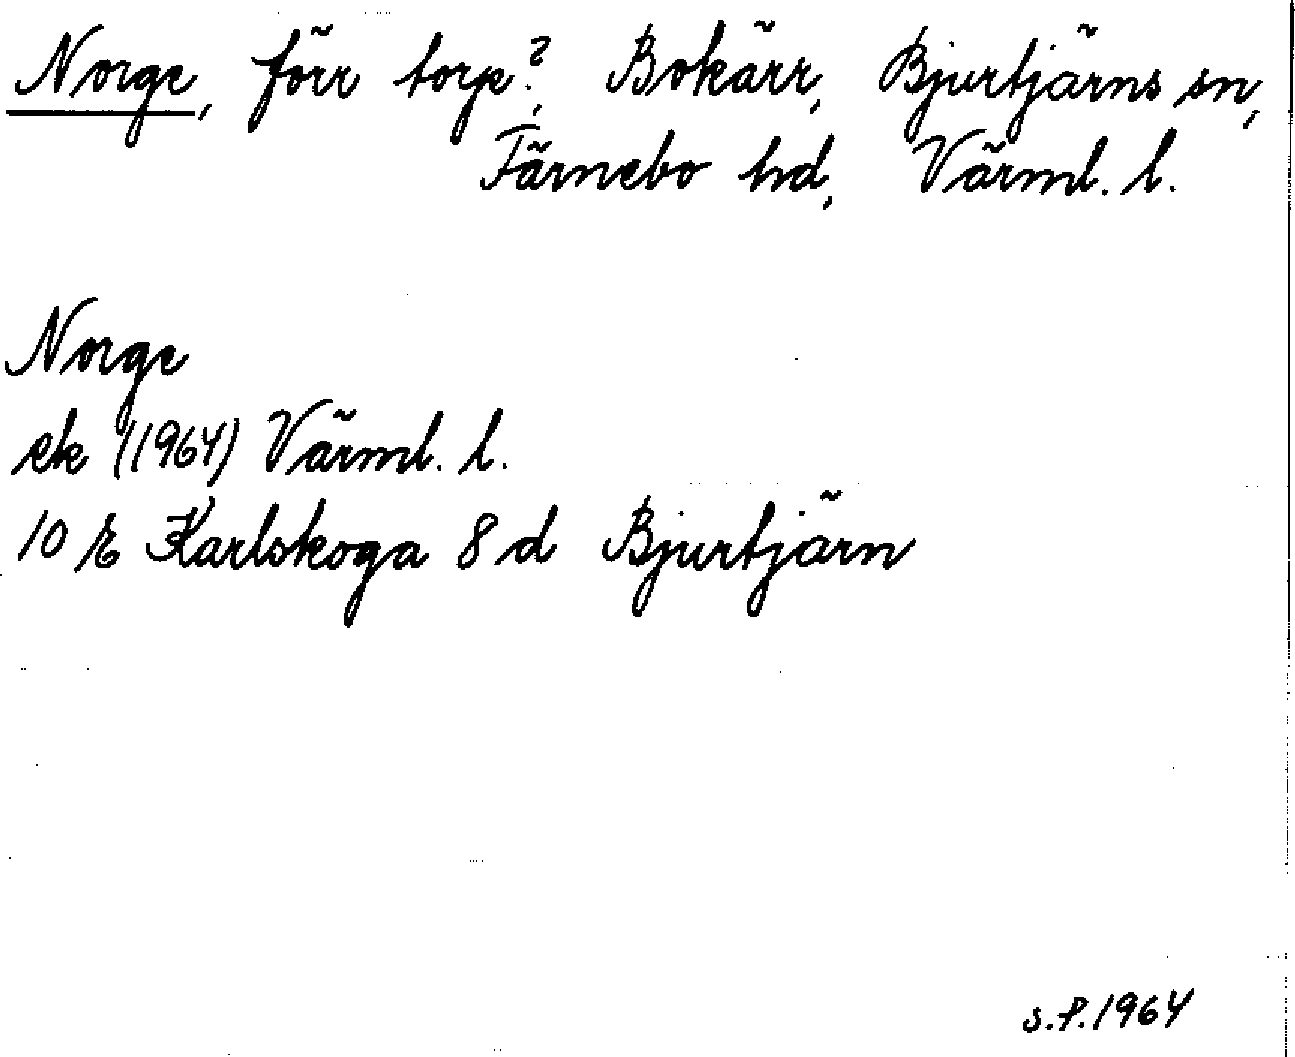 Norge, förr torp?, Bokärr, Bjurtjärns sn,
Färnebo hd, Värml. l.
Norge
ek (1964) Värml. l.
10 E Karlskoga 8 d Bjurtjärn
S.P.1964